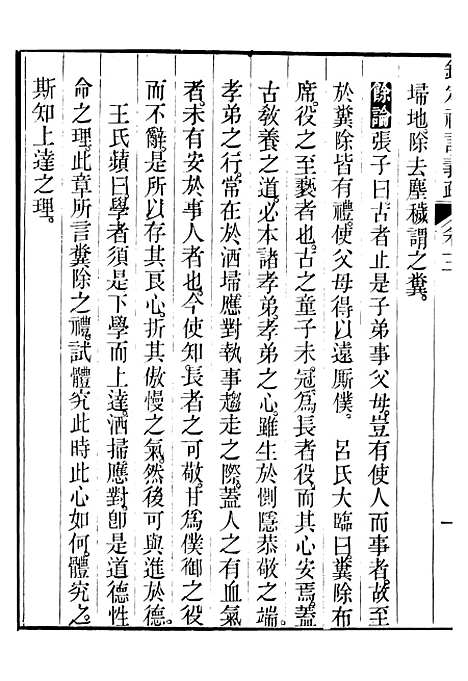 欽定禮記義疏 卷二
埽地除去塵穢謂之糞。
餘論張子曰古者止是子弟事父母。豈有使人而事者。故至
於糞除皆有禮。使父母得以遠厮僕。 呂氏大臨曰糞除布
席。役之至褻者也。古之童子未冠。爲長者役。而其心安焉。蓋
古敎養之道。必本諸孝弟。孝弟之心。雖生於惻隱恭敬之端。
孝弟之行。常在於洒埽應對執事趨走之際。蓋人之有血氣
者。未有安於事人者也。今使知長者之可敬。甘爲僕御之役
而不辭。是所以存其良心。折其傲慢之氣。然後可與進於德。
王氏蘋曰學者須是下學而上達。洒掃應對。卽是道德性
命之理。此章所言糞除之禮。試體究此時此心如何。體究之。
斯知上達之理。